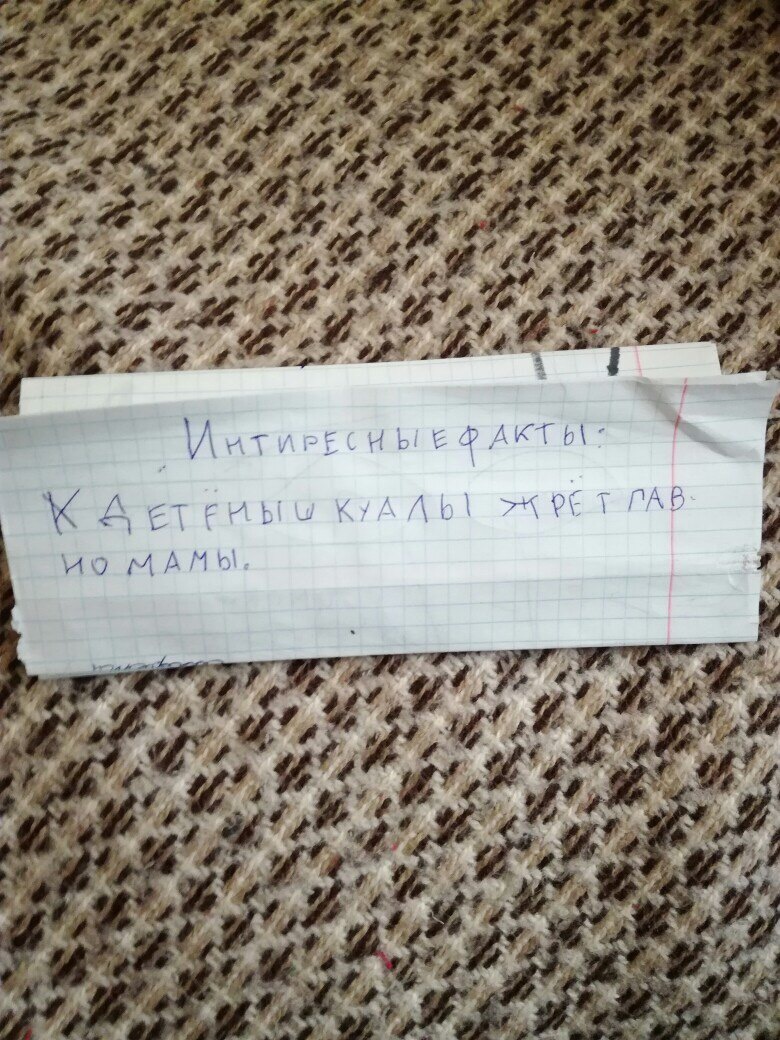 Интиресные факты:
К детёныш куалы жрёт гав-
но мамы.